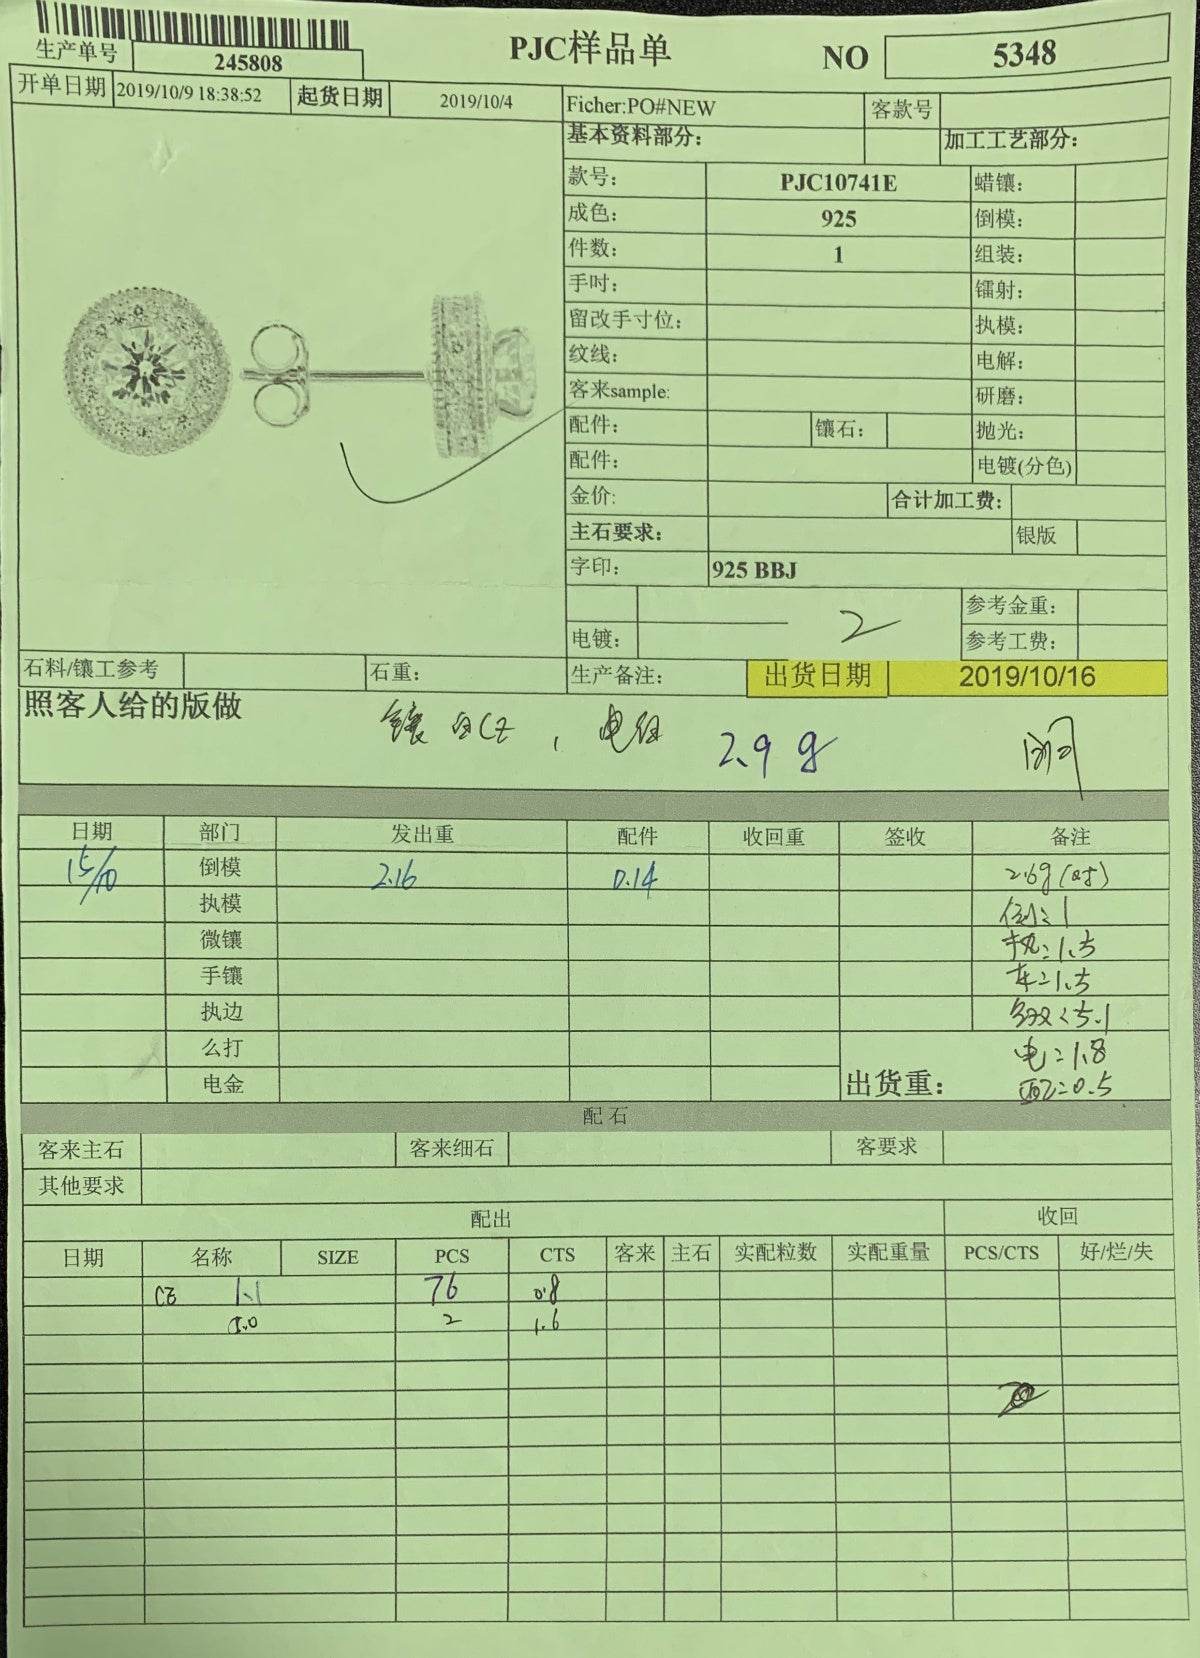 生产单号 245808 PJC样品单 NO 5348
开单日期 2019/10/9 18:38:52 起货日期 2019/10/4 Ficher:PO#NEW 客款号
基本资料部分: 加工工艺部分:
款号: PJC10741E 蜡镶:
成色: 925 倒模:
件数: 1 组装:
手吋: 镭射:
留改手寸位: 执模:
纹线: 电解:
客来sample: 研磨:
配件: 镶石: 抛光:
配件: 电镀(分色)
金价: 合计加工费:
主石要求: 银版
字印: 925 BBJ
参考金重:
电镀: 2 参考工费:
石料/镶工参考 石重: 生产备注: 出货日期 2019/10/16
照客人给的版做 镶白CZ, 电白 2.9g
日期 部门 发出重 配件 收回重 签收 备注
15/10 倒模 2.16 0.14 2.6g
执模 倒:1
微镶 执:1.5
手镶 车:1.5
执边 5.1
么打 电:1.8
电金 出货重: 配:0.5
配石
客来主石 客来细石 客要求
其他要求
配出 收回
日期 名称 SIZE PCS CTS 客来 主石 实配粒数 实配重量 PCS/CTS 好/烂/失
CZ 1.1 76 0.8
5.0 2 1.6